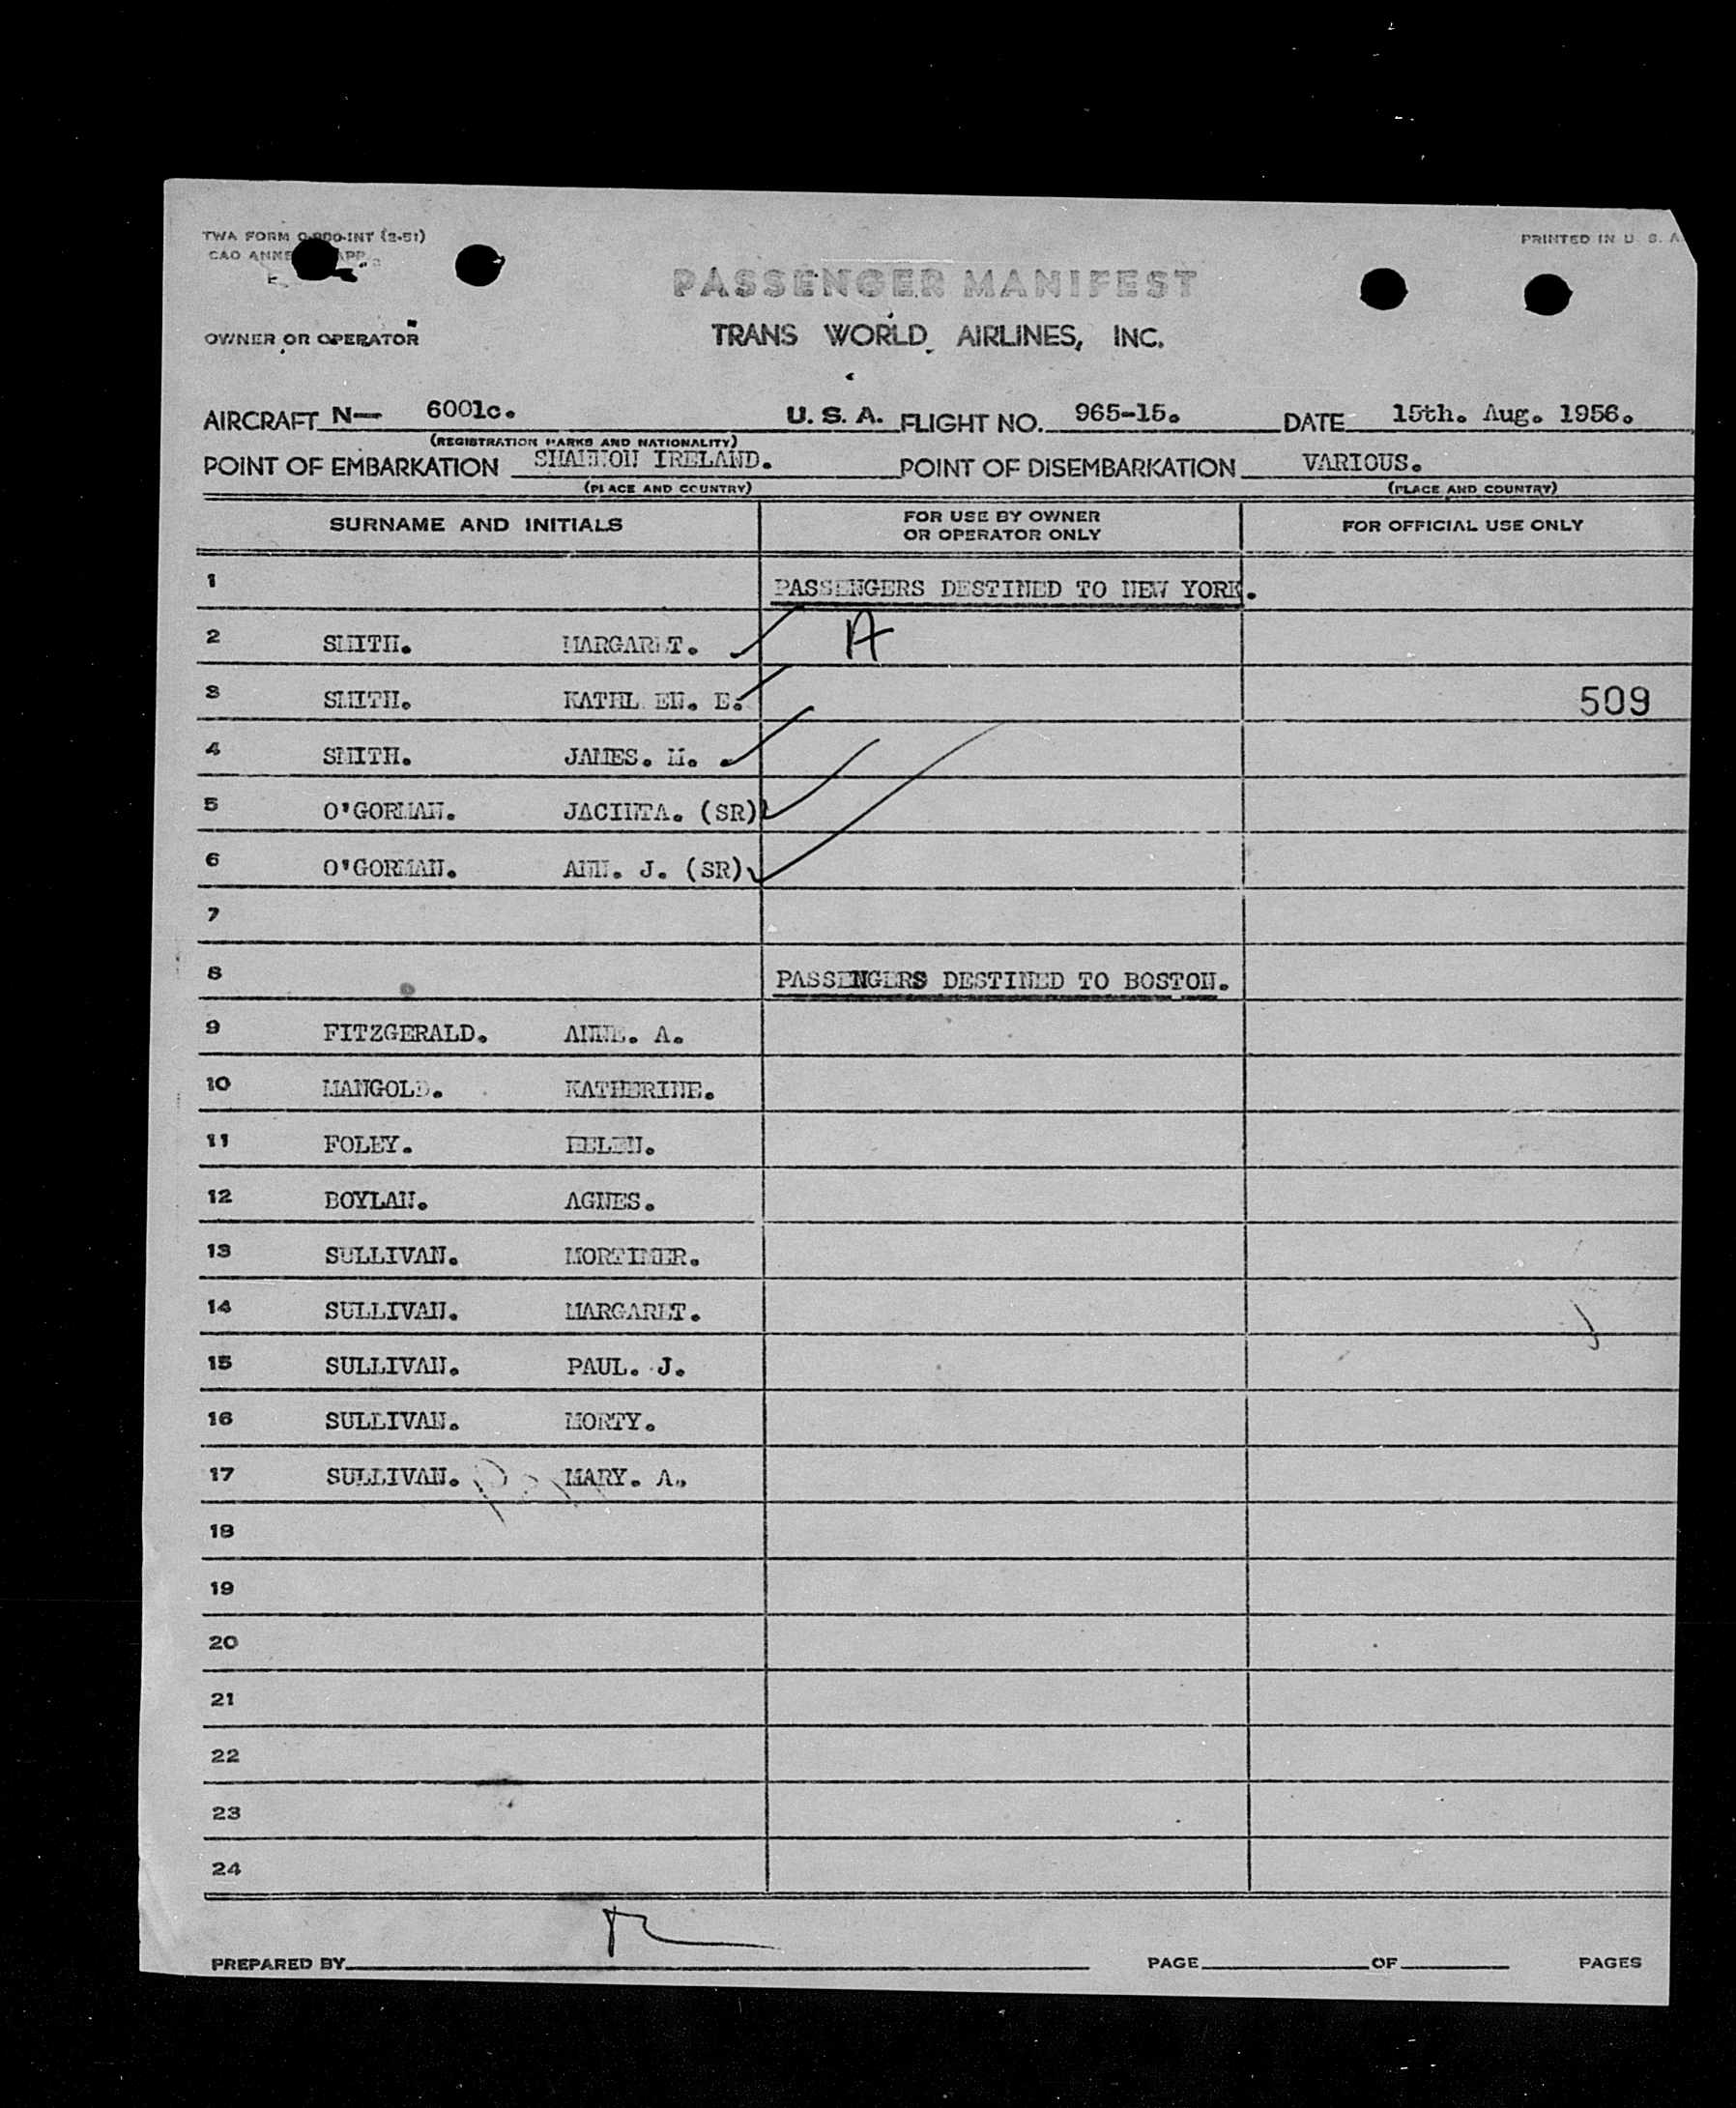 TWA FORM O-800-INT (2-51) PRINTED IN U. S. A.
CAO ANNE APP.
PASSENGER MANIFEST
OWNER OR OPERATOR TRANS WORLD AIRLINES, INC.
AIRCRAFT N— 6001c. U. S. A. FLIGHT NO. 965-15. DATE 15th. Aug. 1956.
(REGISTRATION MARKS AND NATIONALITY)
POINT OF EMBARKATION SHANNON IRELAND. POINT OF DISEMBARKATION VARIOUS.
(PLACE AND COUNTRY) (PLACE AND COUNTRY)
SURNAME AND INITIALS FOR USE BY OWNER OR OPERATOR ONLY FOR OFFICIAL USE ONLY
1 PASSENGERS DESTINED TO NEW YORK.
2 SMITH. MARGARET. A
3 SMITH. KATHLEEN. E. 509
4 SMITH. JAMES. M.
5 O'GORMAN. JACINTA. (SR)
6 O'GORMAN. ANN. J. (SR)
7
8 PASSENGERS DESTINED TO BOSTON.
9 FITZGERALD. ANNE. A.
10 MANGOLD. KATHERINE.
11 FOLEY. HELEN.
12 BOYLAN. AGNES.
13 SULLIVAN. MORTIMER.
14 SULLIVAN. MARGARET.
15 SULLIVAN. PAUL. J.
16 SULLIVAN. MORTY.
17 SULLIVAN. MARY. A.
18
19
20
21
22
23
24
PREPARED BY PAGE OF PAGES